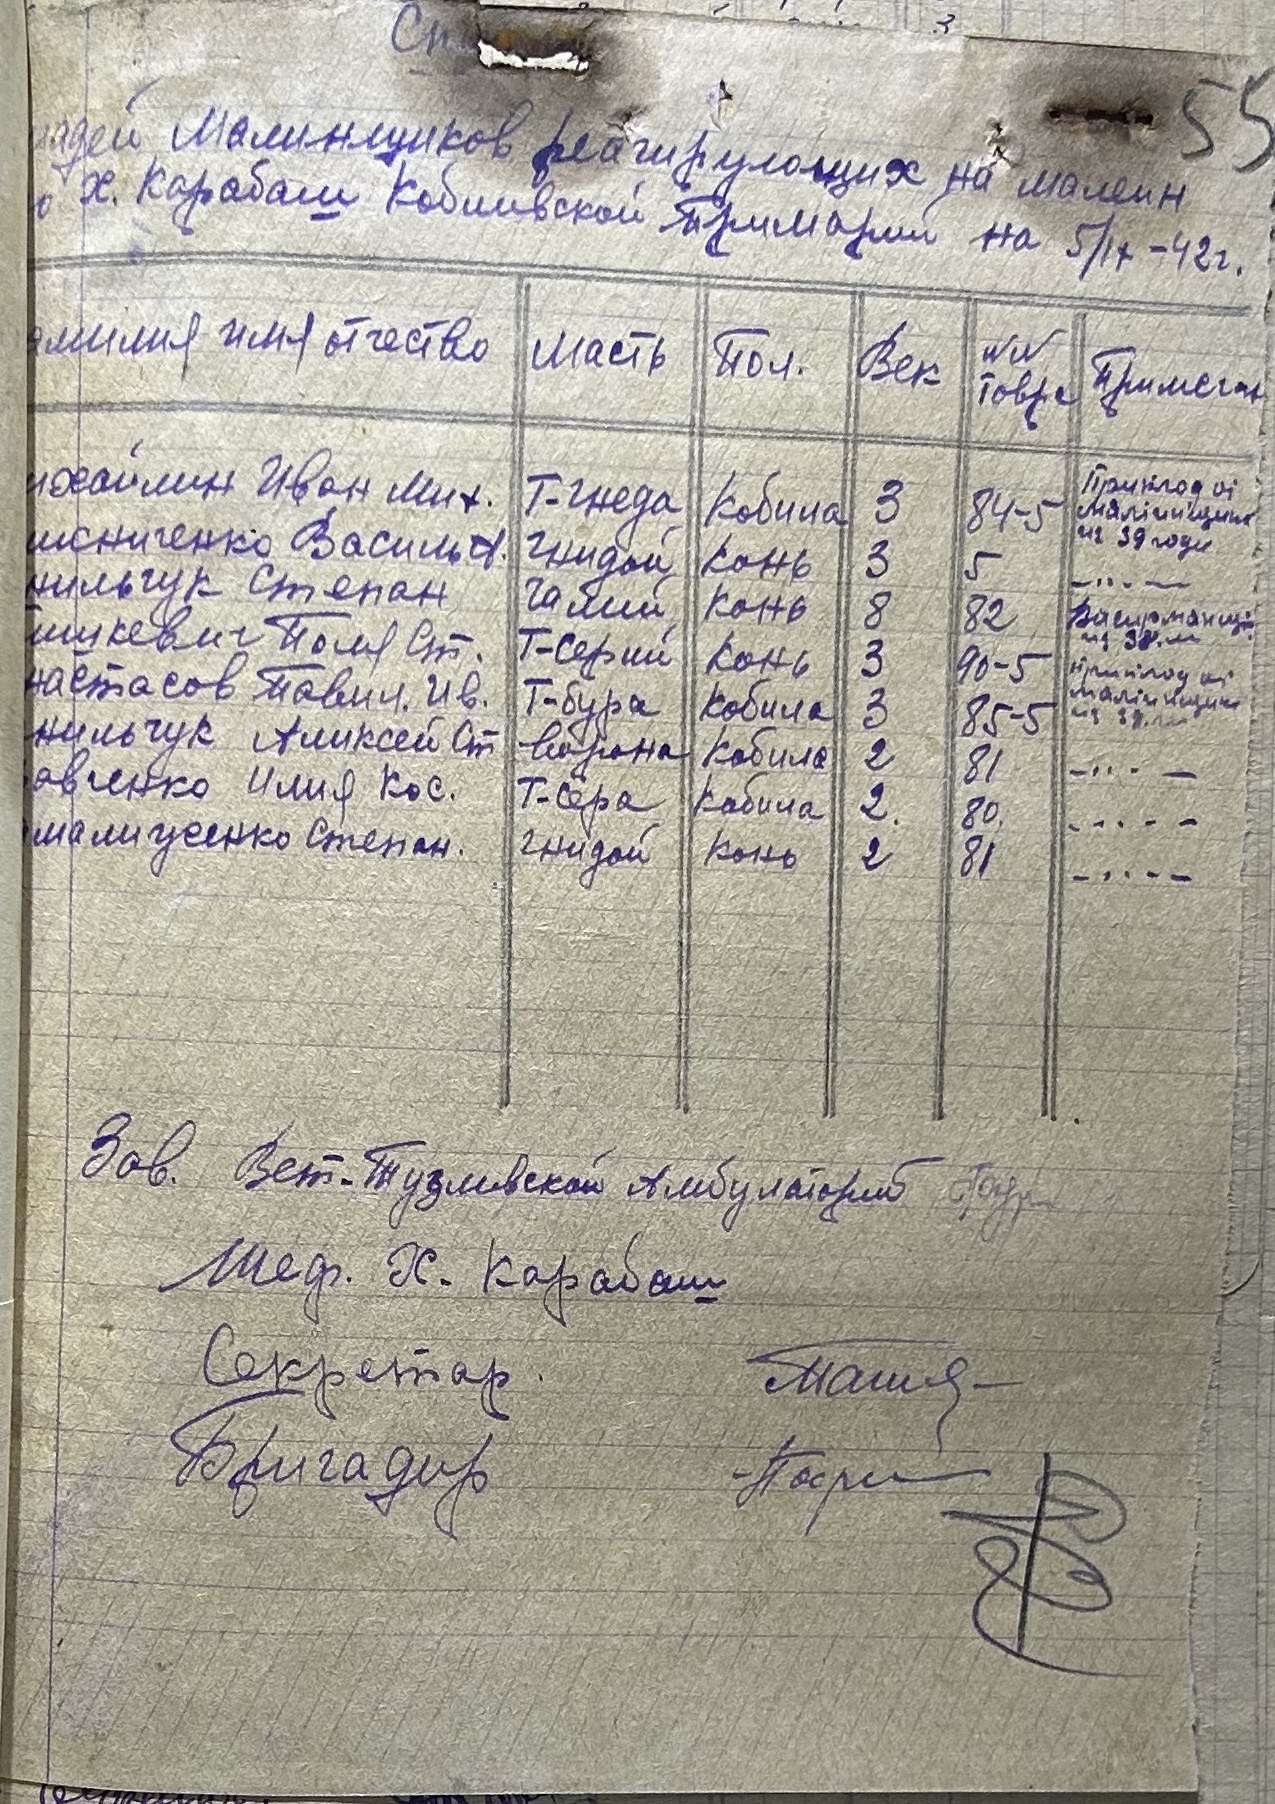 Сп
55
надей Малинщиков реагирующих на малеин
о Х. Карабаш Кобливской Примарии на 5/IX-42г.
амилия имя отчество Масть Пол. Век №№ Товра Примечан
ихайлин Иван Мих. Т-гнеда Кобила 3 84-5 Приплод от малинщик из 39 года
сниченко Василь А. гнидой Конь 3 5 -..-
нильчук Степан Конь 8 82 из 38
шкевич Поля Ст. Т-Серий Конь 3 90-5 Приплод от
настасов Павил. Ив. Т-бура Кобила 3 85-5 малинщик из 39
нильчук Аликсей Ст ворона Кобила 2 81 -..-
авченко Илия Кос. Т-Сера Кобила 2. 80. -..-
малиусенко Степан. гнидой Конь 2 81 -..-
Зав. Вет-Тузливской Амбулаторий
Шеф. Х. Карабаш
Секретар.
Бригадир